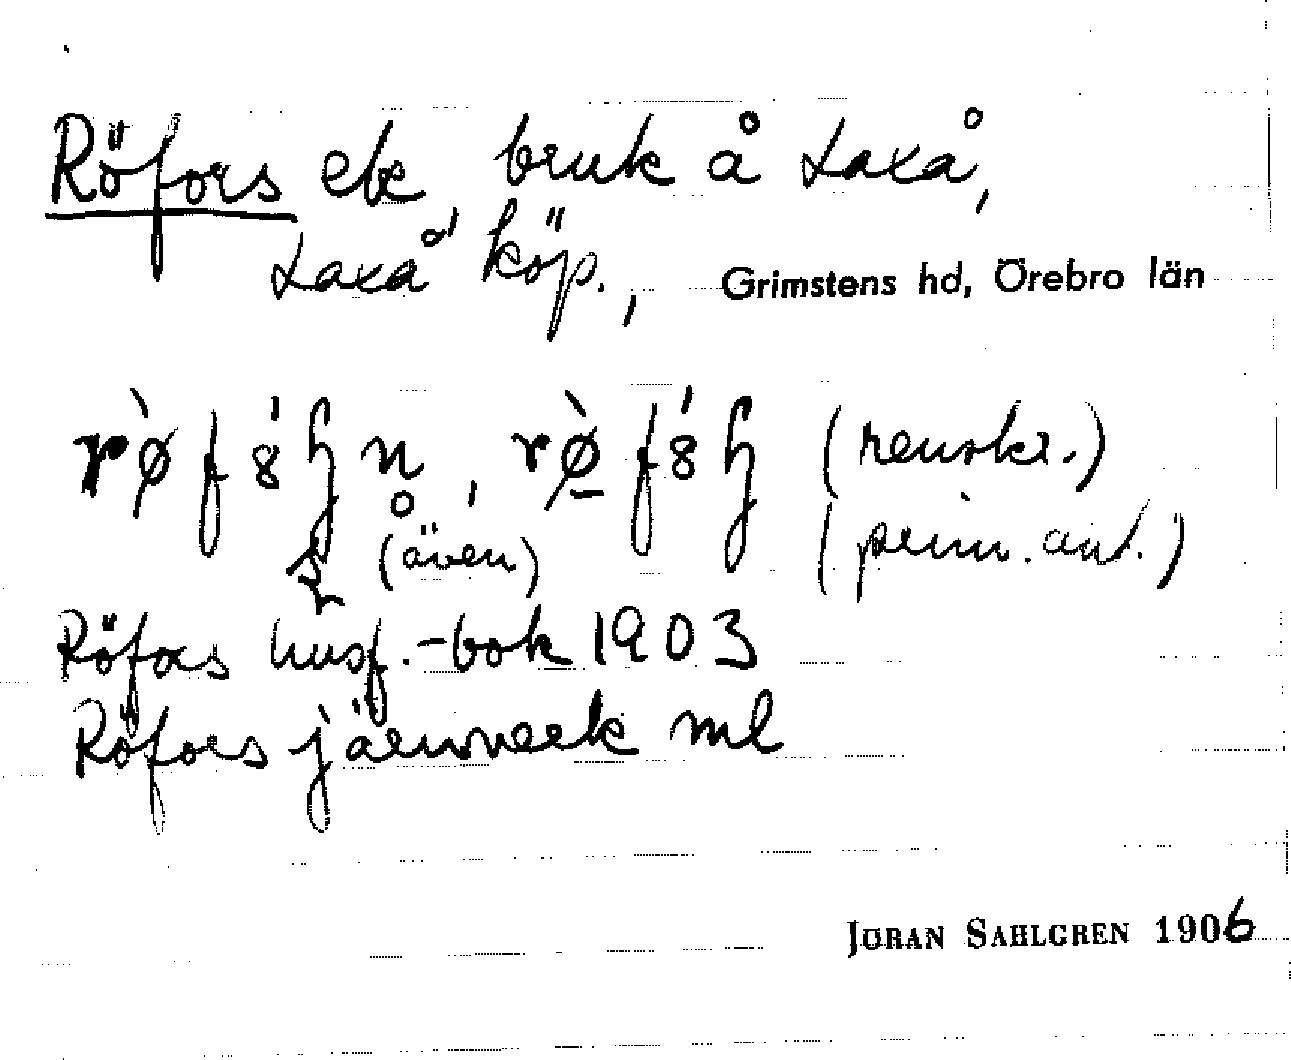 Röfors ek, bruk å Laxå,
Laxå köp., Grimstens hd, Örebro län
(renskr.)
(även) (prim. ant.)
Röfors husf.-bok 1903
Röfors järnverk ml
JÖRAN SAHLGREN 1906